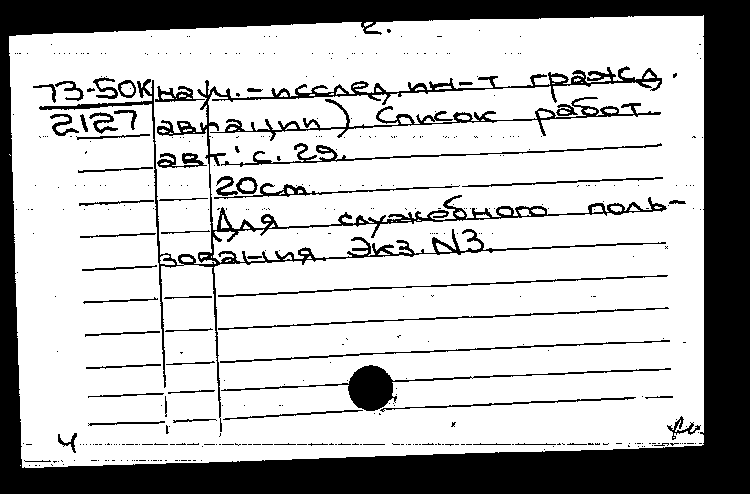 2.
73-50К науч.-исслед. ин-т гражд.
2127 авиации). Список работ
авт.: с. 29.
20см.
Для служебного поль-
зования. Экз. N3.
ч